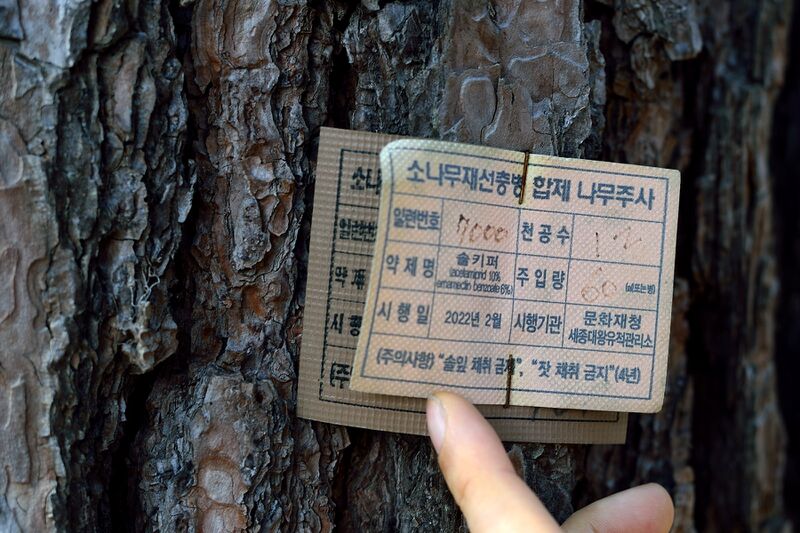 소나무재선충병 합제 나무주사
일련번호 7000 천공수 12
약제명 솔키퍼 (acetamiprid 10% emamectin benzoate 6%) 주입량 60 (㎖(또는병)
시행일 2022년 2월 시행기관 문화재청 세종대왕유적관리소
(주의사항) "솔잎 채취 금지", "잣 채취 금지" (4년)
소나
일련번호
약제
시행
(주